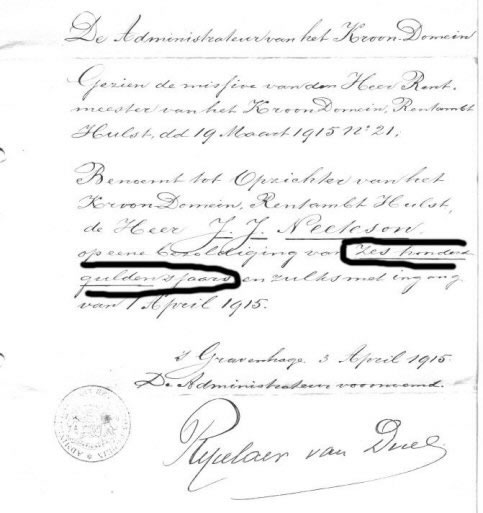 De Administrateur van het Kroon-Domein
Gezien de missive van den Heer Rent-
meester van het KroonDomein, Rentambt
Hulst, dd 19 Maart 1915 No 21,
Benoemt tot Opzichter van het
KroonDomein, Rentambt Hulst,
de Heer J. J. Neeteson
op eene bezoldiging van zes honderd
gulden 'sjaars en zulks met ingang
van 1 April 1915.
's Gravenhage 3 April 1915.
De Administrateur voornoemd.
van